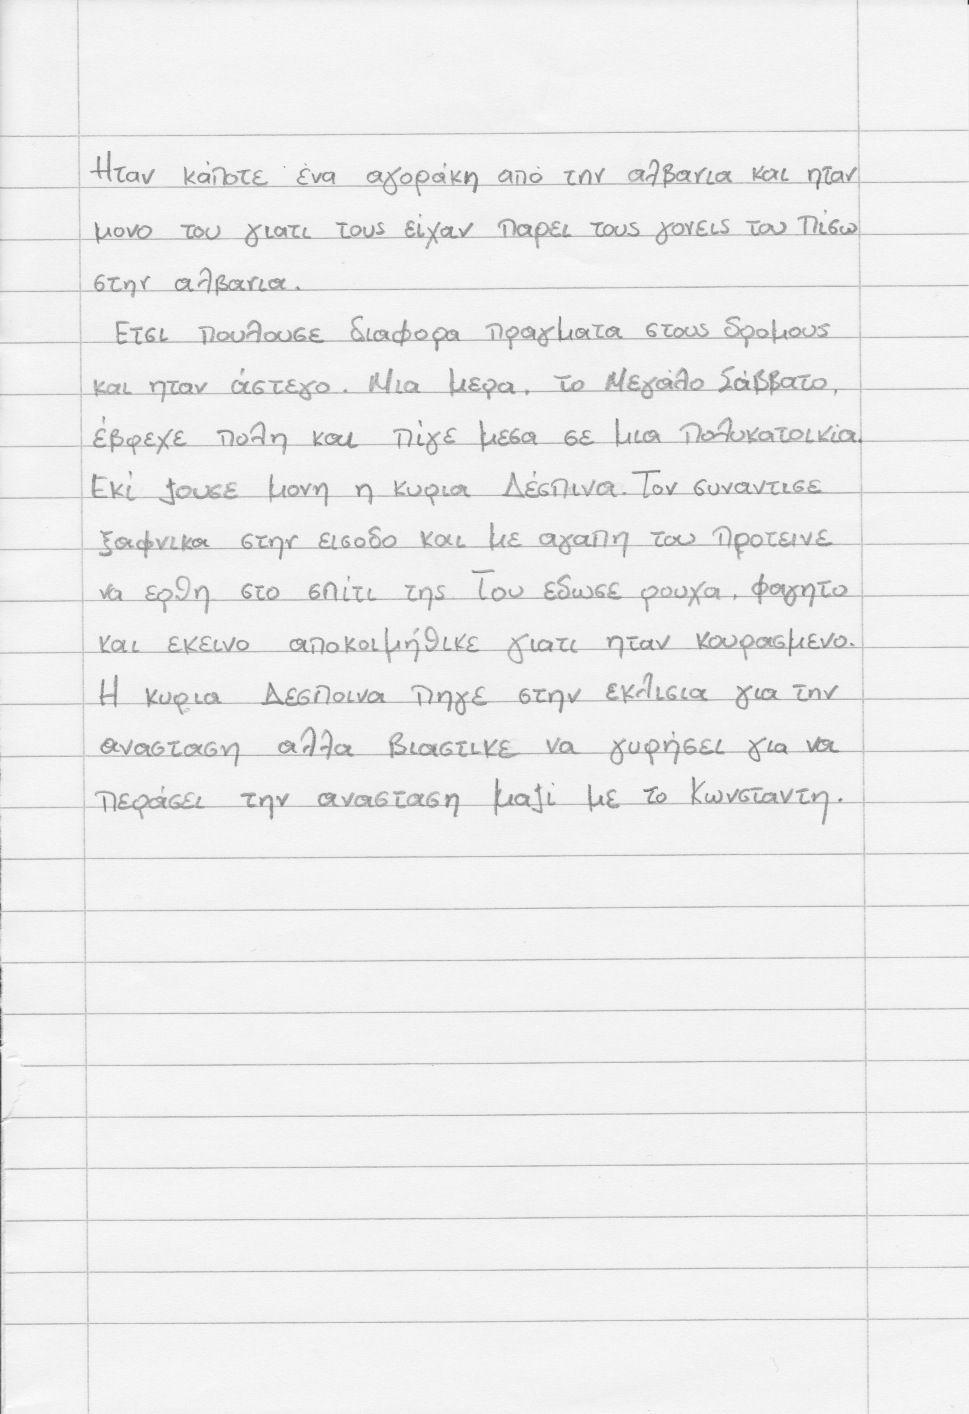 Ηταν κάποτε ένα αγοράκη από την αλβανια και ηταν
μονο του γιατι τους είχαν παρει τους γονεις του πίσω
στην αλβανια.
Ετσι πουλουσε διαφορα πραγματα στους δρομους
και ηταν άστεγο. Μια μερα, το Μεγάλο Σάββατο,
έβρεχε πολη και πίγε μεσα σε μια πολυκατοικία.
Εκί ζουσε μονη η κυρια Δέσπινα. Τον συναντισε
ξαφνικα στην εισοδο και με αγαπη του προτεινε
να ερθη στο σπίτι της Του εδωσε ρουχα, φαγητο
και εκεινο αποκοιμήθικε γιατι ηταν κουρασμενο.
Η κυρια Δεσποινα πηγε στην εκλισια για την
ανασταση αλλα βιαστικε να γυρήσει για να
περάσει την ανασταση μαζί με το Κωνσταντη.